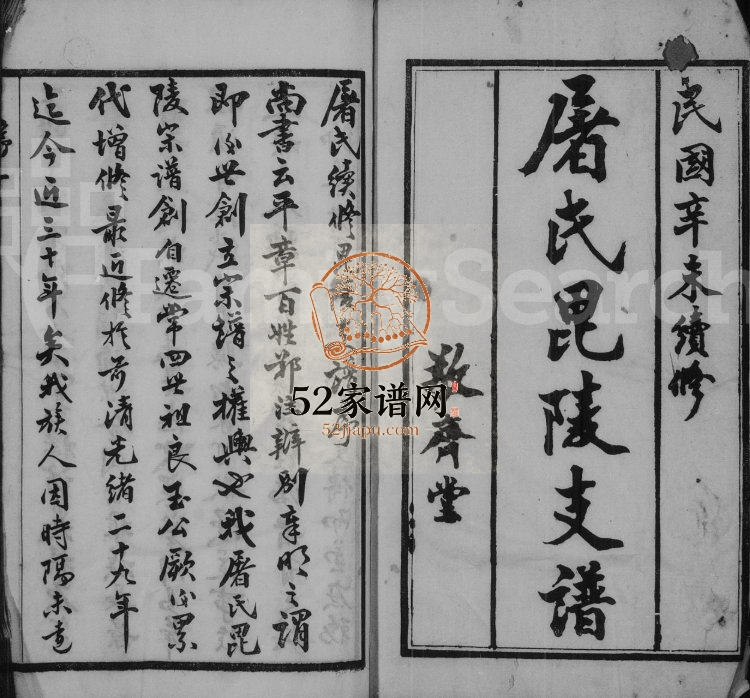 民國辛未續修
屠氏毘陵支譜
敦齊堂
屠氏續修毘陵支譜序
尚書云平章百姓鄭注辦別章明之謂
即後世創立宗譜之權輿也我屠氏毘
陵宗譜創自遷常四世祖良玉公厥後累
代增修最近修於前清光緒二十九年
迄今近三十年矣我族人因時隔未遠
序一
52家谱网
52jiapu.com
Search